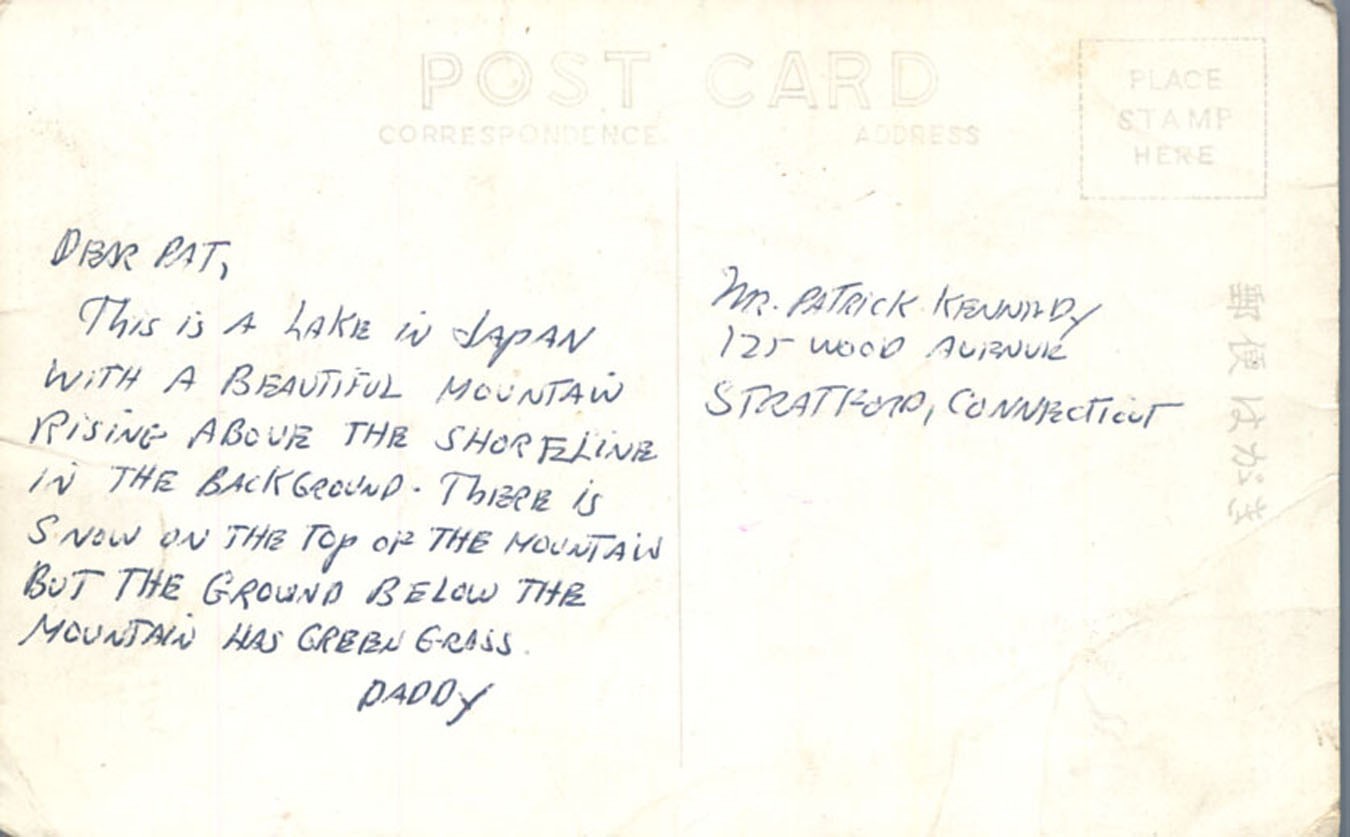 POST CARD
CORRESPONDENCE
ADDRESS
PLACE
STAMP
HERE
DEAR PAT,
This is A LAKE in JAPAN
WITH A BEAUTIFUL MOUNTAIN
RISING ABOVE THE SHORELINE
IN THE BACKGROUND. THERE is
SNOW ON THE TOP OF THE MOUNTAIN
BUT THE GROUND BELOW THE
MOUNTAIN HAS GREEN GRASS.
DADDY
MR. PATRICK KENNEDY
125 WOOD AVENUE
STRATFORD, CONNECTICUT
郵便はがき